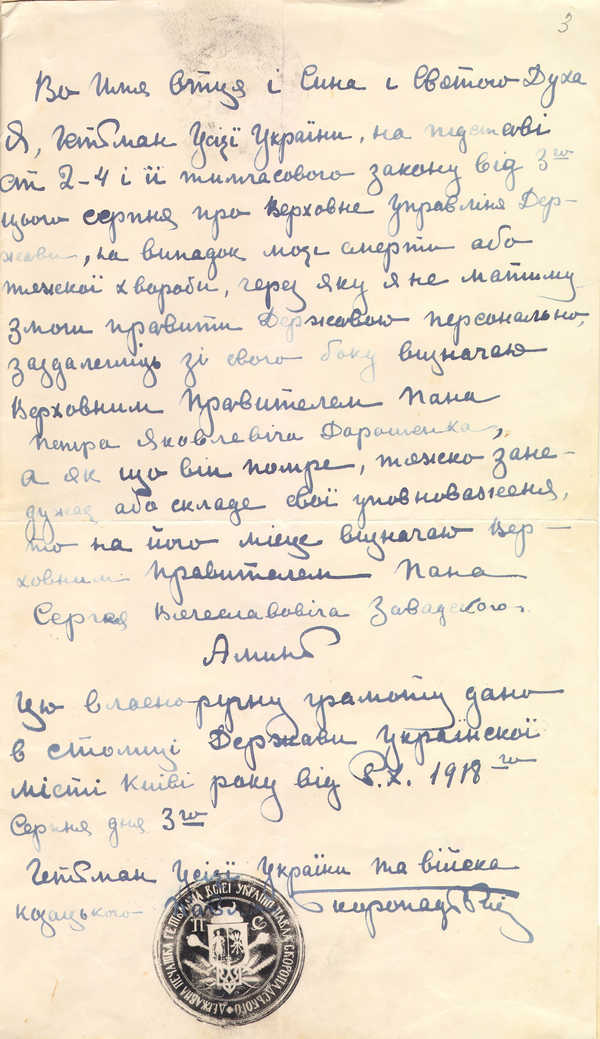 3
Во Имя Отця і Сина і Святого Духа
Я, Гетьман Усієї України, на підставі
ст 2-4 і її тимчасового закону від 3го
цього серпня про Верховне Управління Дер-
жави, на випадок моєї смерти або
тяжкої хвороби, через яку я не матиму
змоги правити Державою персонально,
заздалегідь зі свого боку визначаю
Верховним Правителем Пана
Петра Яковлевіча Дорошенка,
а як що він помре, тяжко зане-
дужає або складе свої уповноваженя,
то на його місце визначаю Вер-
ховним Правителем Пана
Сергія Вячеславовіча Завадского.
Аминь
Цю власноручну грамоту дано
в столиці Держави Української
місті Київі року від Р.Х. 1918го
Серпня дня 3го
Гетьман Усієї України та війска
козацького Павло Скоропадський
ДЕРЖАВНА ПЕЧАТКА ГЕТЬМАНА ВСІЄЇ УКРАЇНИ ПАВЛА СКОРОПАДСЬКОГО
П С